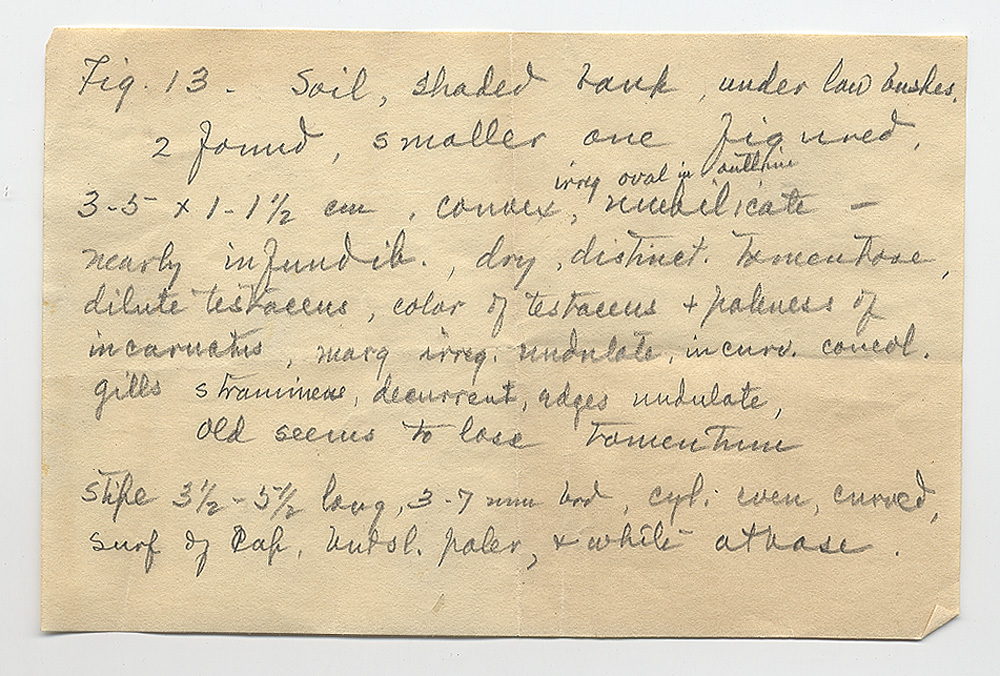 Fig. 13 - Soil, shaded bank, under low bushes.
2 found, smaller one figured,
irreg oval in outline
3-5 x 1-1½ cm, convex, umbilicate -
nearly infundib., dry, distinct. tomentose,
dilute testaceus, color of testaceus + paleness of
incarnatus, marg irreg. undulate, incurv. concol.
gills stramineus, decurrent, edges undulate,
old seems to lose tomentum
stipe 3½-5½ long, 3-7 mm brd, cyl. even, curved,
surf of cap, but sl. paler, & white at base.